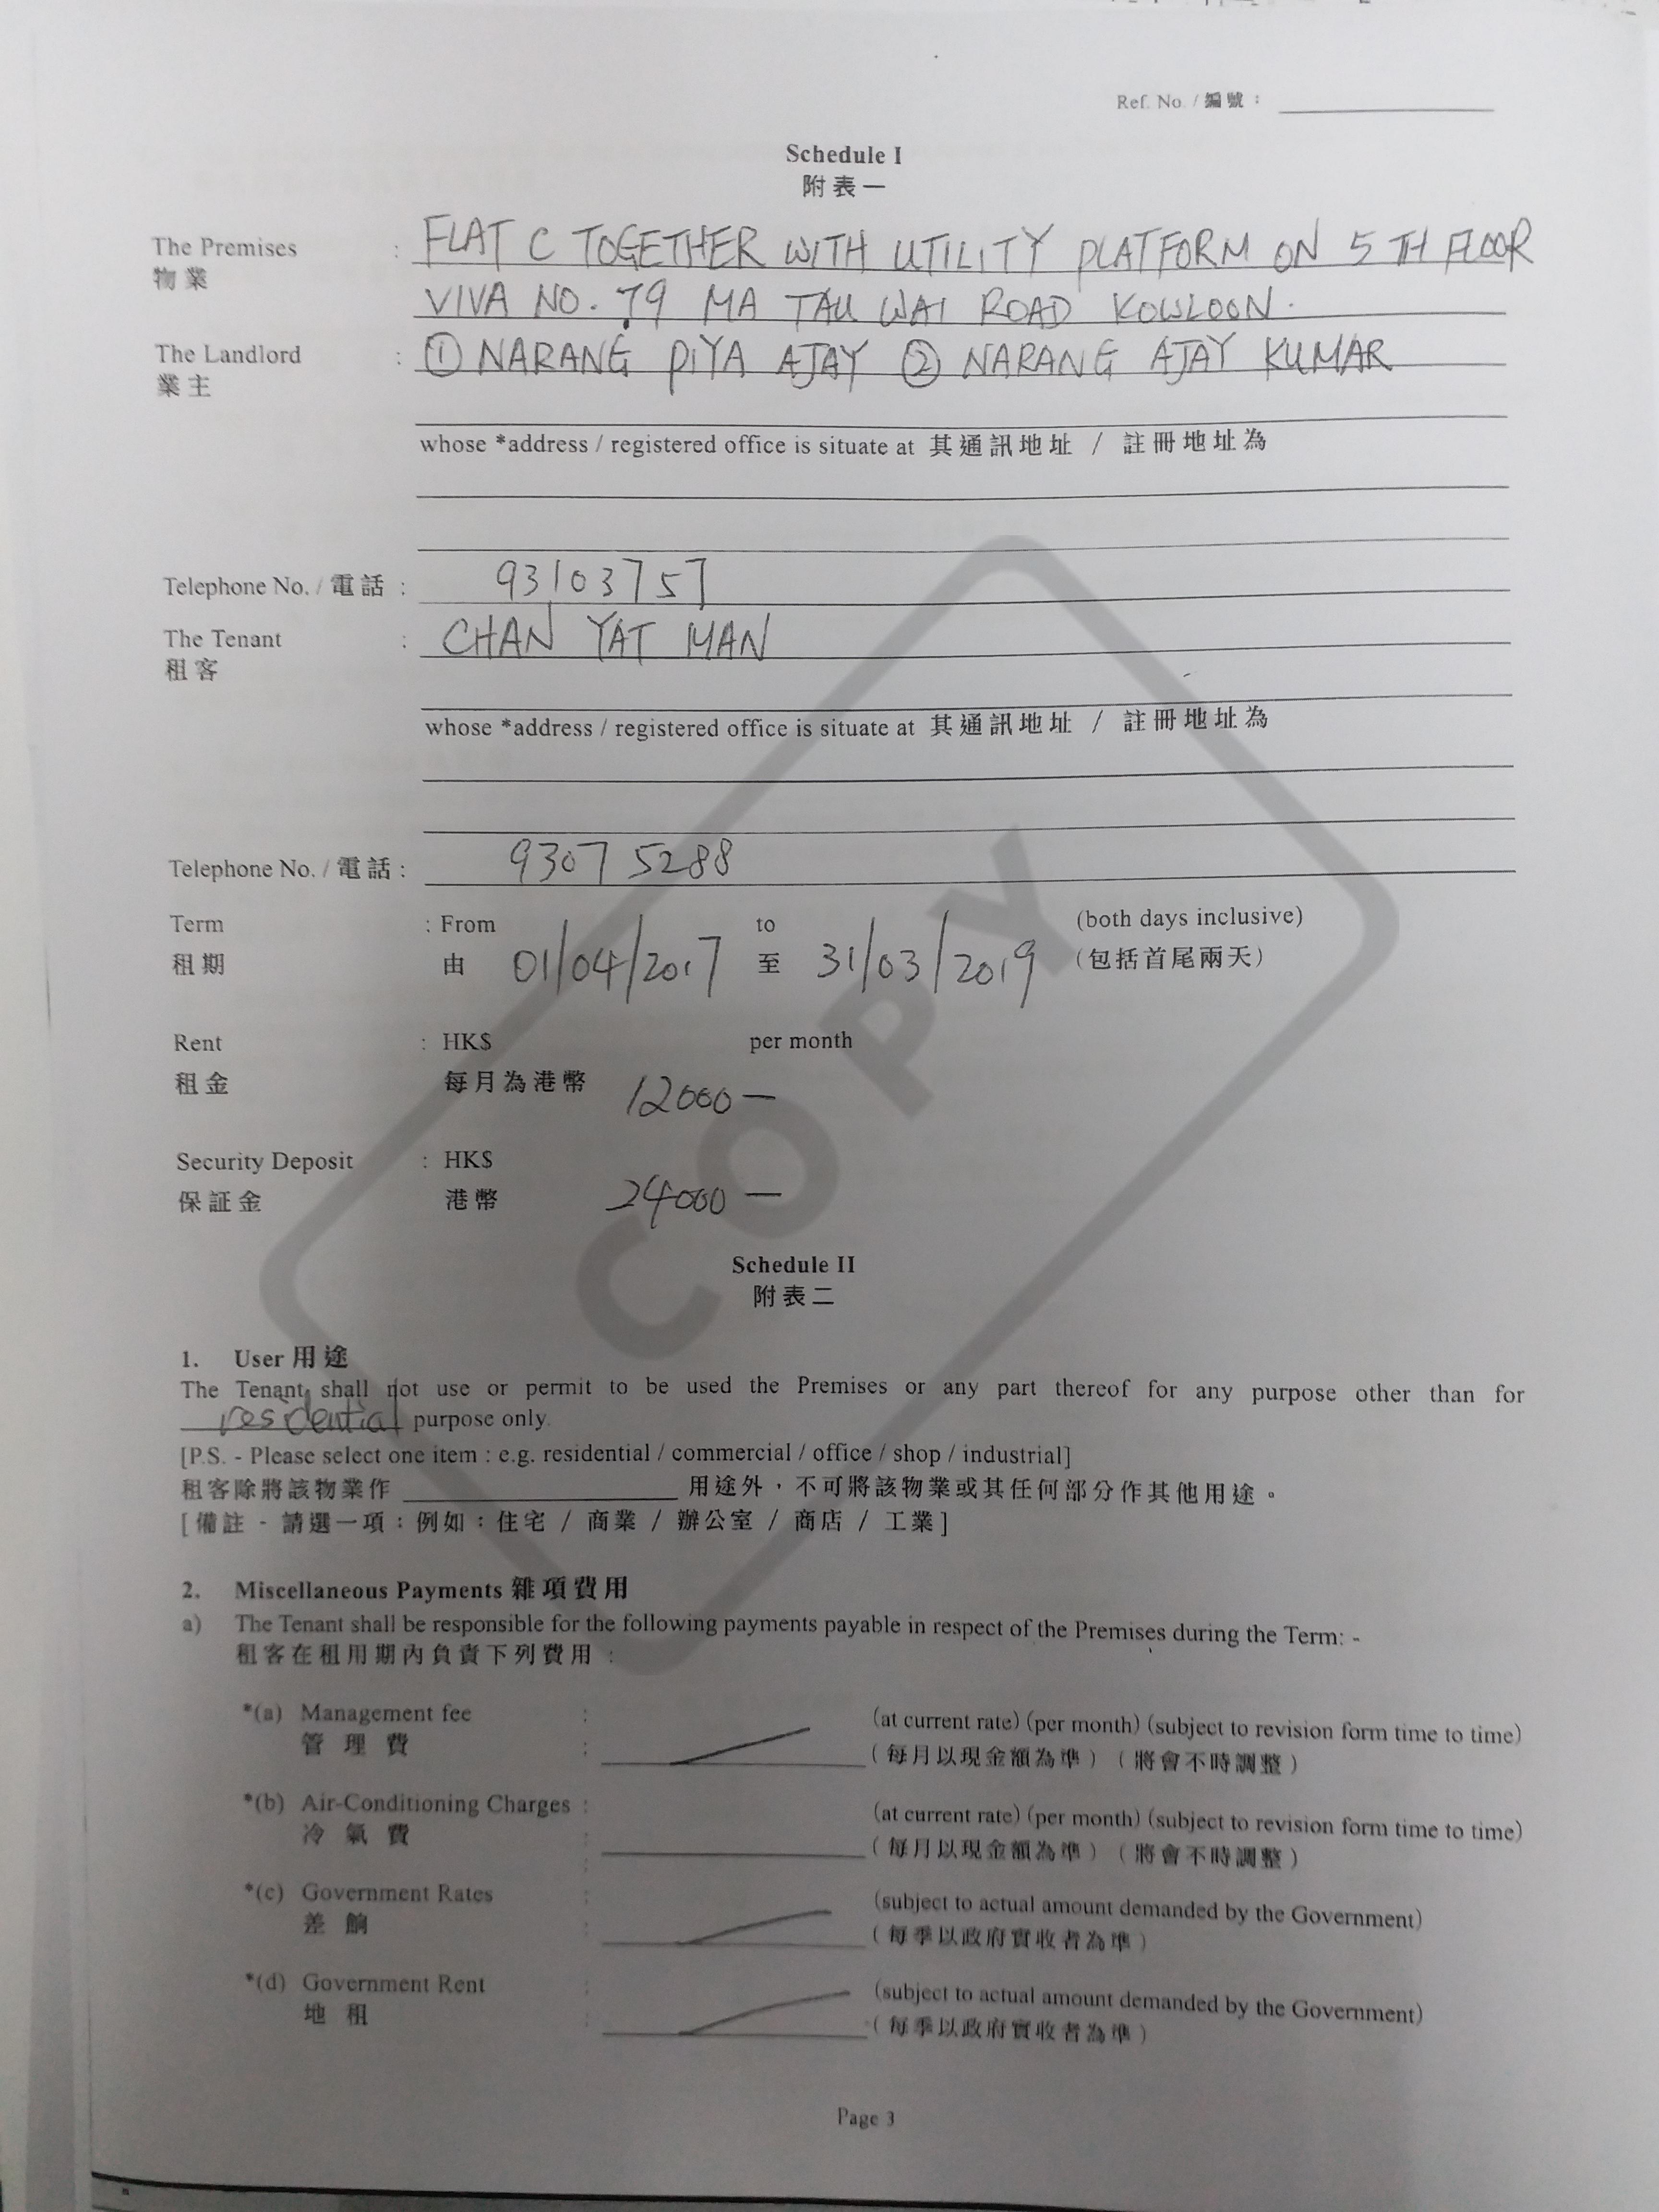 Ref. No. / 編號 :
Schedule I
附表一
The Premises : FLAT C TOGETHER WITH UTILITY PLATFORM ON 5 TH FLOOR
物業
VIVA NO. 79 MA TAU WAI ROAD KOWLOON.
The Landlord : ① NARANG PIYA AJAY ② NARANG AJAY KUMAR
業主
whose *address / registered office is situate at 其通訊地址 / 註冊地址為
Telephone No. / 電話 : 93103757
The Tenant : CHAN YAT MAN
租客
whose *address / registered office is situate at 其通訊地址 / 註冊地址為
Telephone No. / 電話 : 9307 5288
Term : From to (both days inclusive)
租期 由 01/04/2017 至 31/03/2019 (包括首尾兩天)
Rent : HK$ per month
租金 每月為港幣 12000 —
Security Deposit : HK$
保証金 港幣 24000 —
COPY
Schedule II
附表二
1. User 用途
The Tenant shall not use or permit to be used the Premises or any part thereof for any purpose other than for
residential purpose only.
[P.S. - Please select one item : e.g. residential / commercial / office / shop / industrial]
租客除將該物業作 用途外，不可將該物業或其任何部分作其他用途。
[備註 - 請選一項：例如：住宅 / 商業 / 辦公室 / 商店 / 工業]
2. Miscellaneous Payments 雜項費用
a) The Tenant shall be responsible for the following payments payable in respect of the Premises during the Term: -
租客在租用期內負責下列費用 :
*(a) Management fee : (at current rate) (per month) (subject to revision form time to time)
管理費 : (每月以現金額為準) (將會不時調整)
*(b) Air-Conditioning Charges : (at current rate) (per month) (subject to revision form time to time)
冷氣費 : (每月以現金額為準) (將會不時調整)
*(c) Government Rates : (subject to actual amount demanded by the Government)
差餉 : (每季以政府實收者為準)
*(d) Government Rent : (subject to actual amount demanded by the Government)
地租 : (每季以政府實收者為準)
Page 3